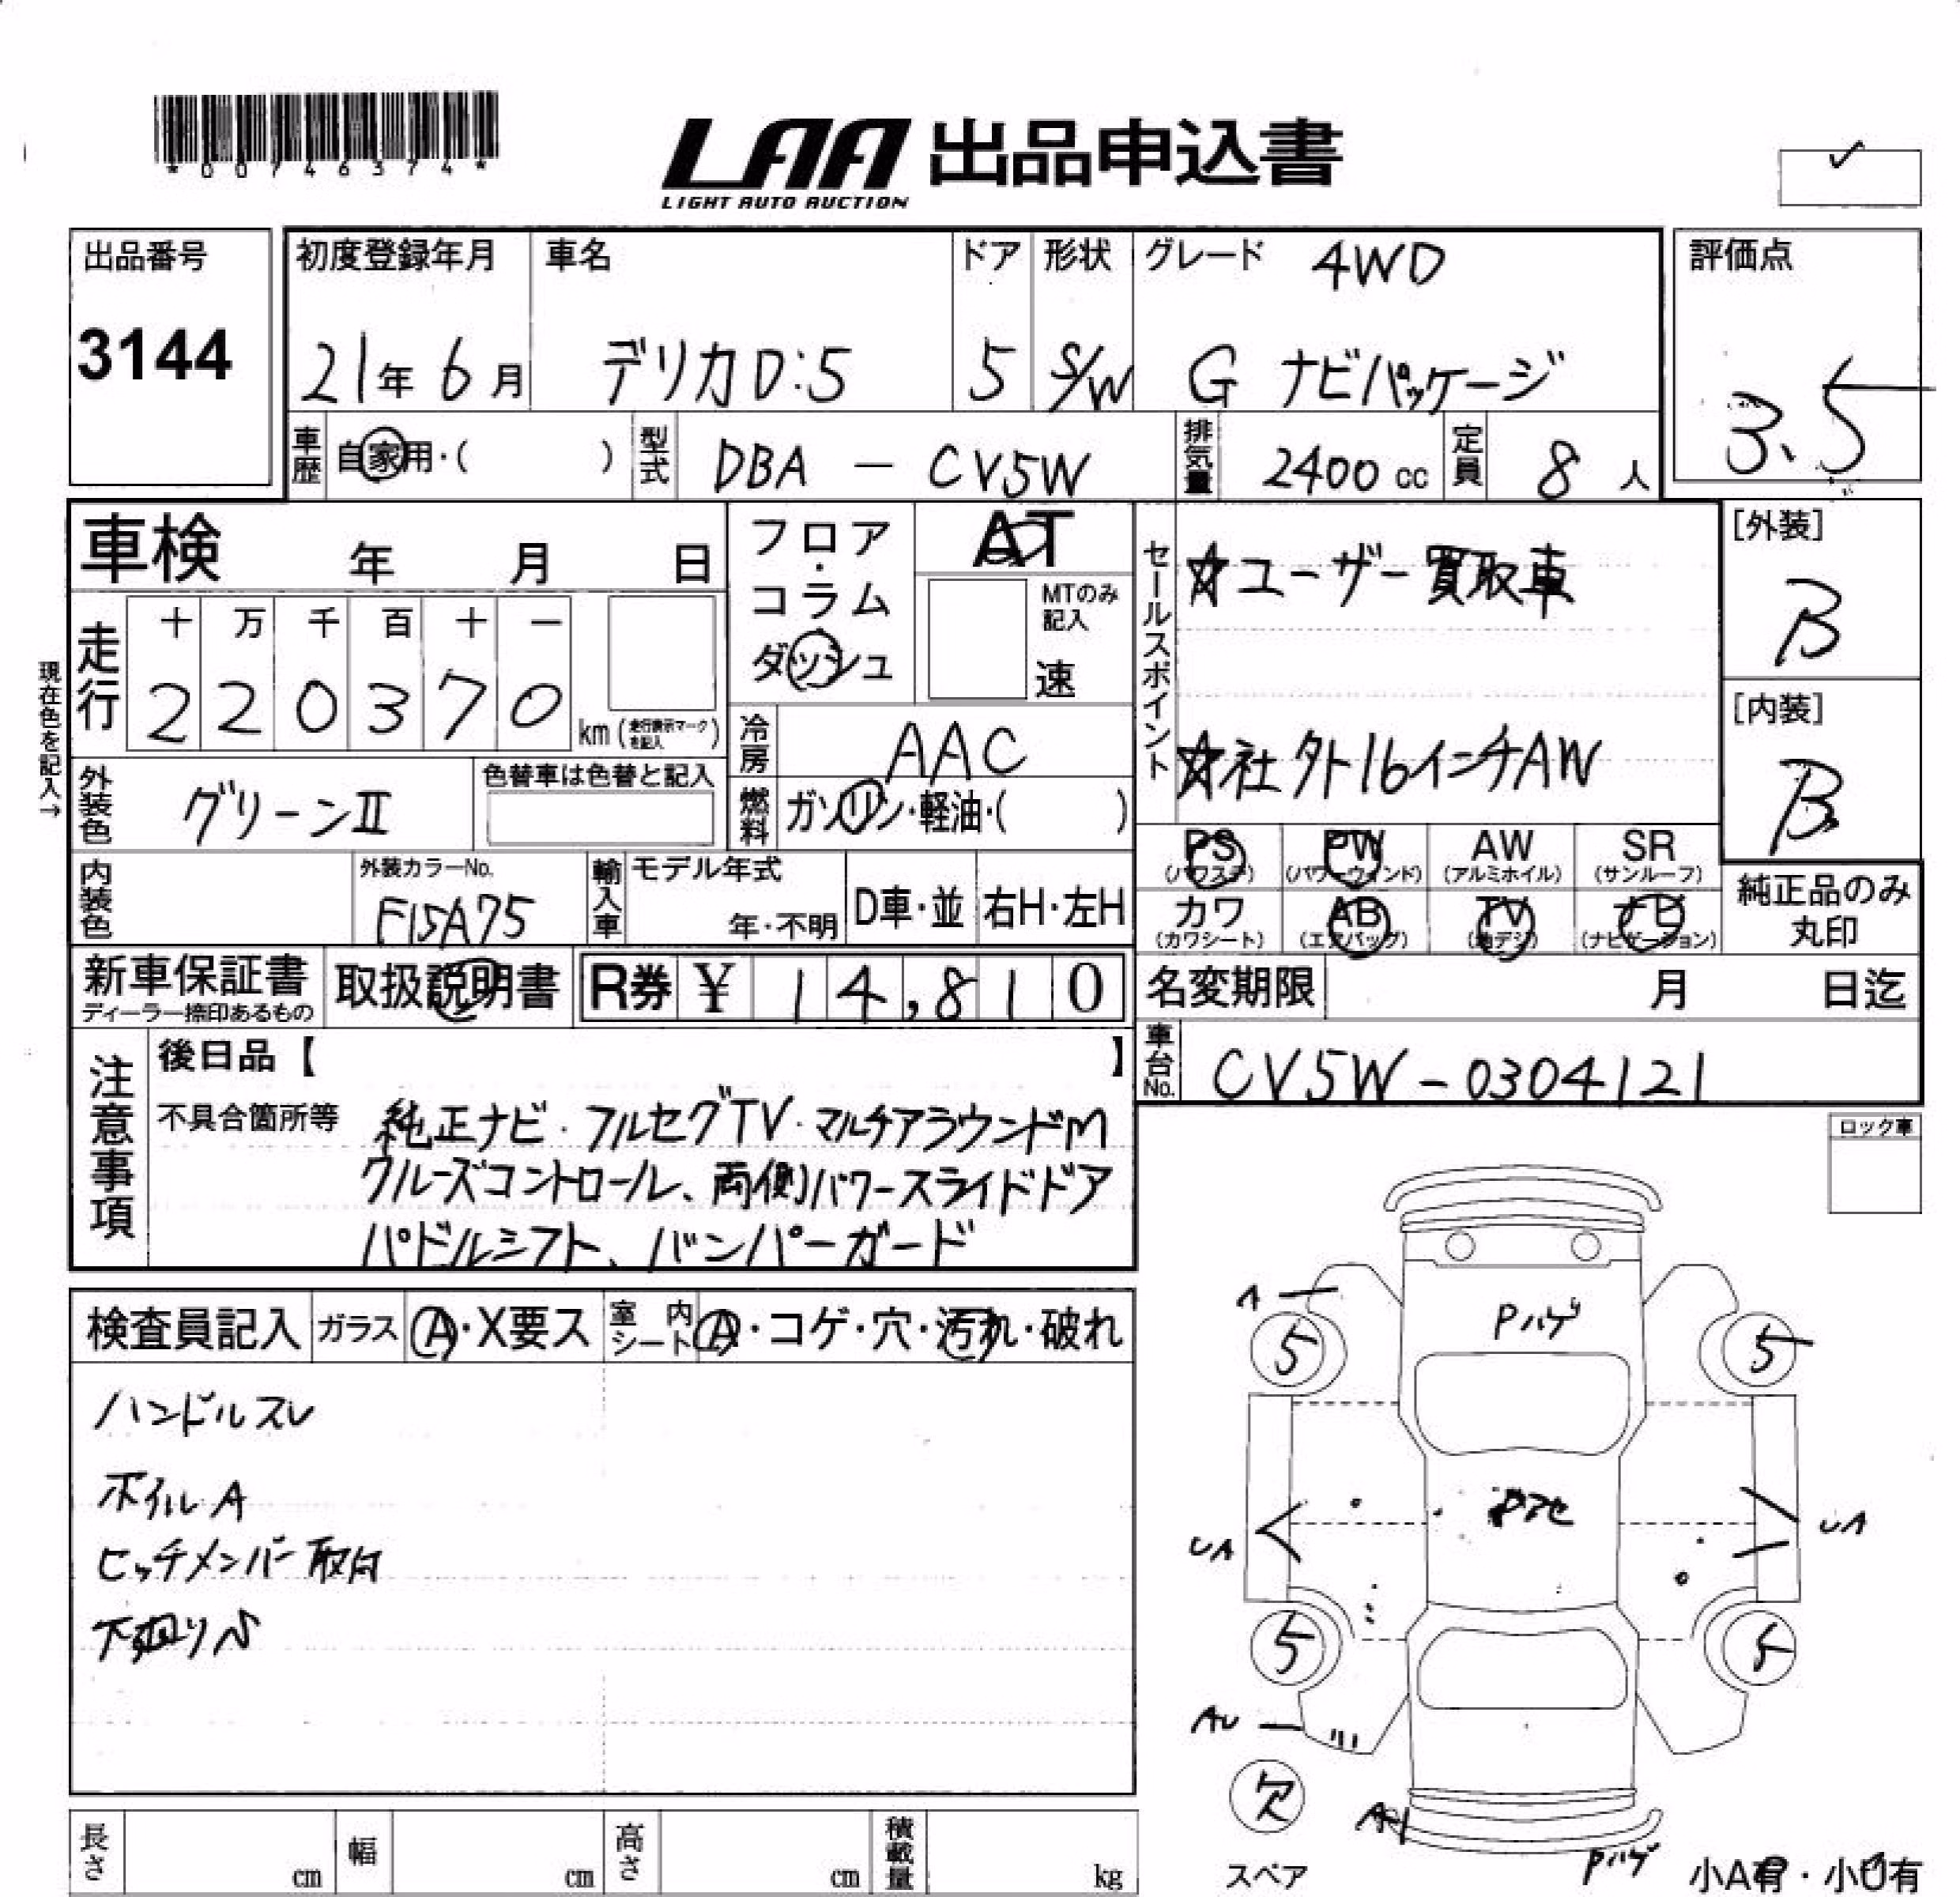 *00746374*
LAA 出品申込書
LIGHT AUTO AUCTION
出品番号
3144
初度登録年月
21年6月
車名
デリカD:5
ドア
5
形状
S/W
グレード 4WD
G ナビパッケージ
評価点
3.5
車歴 自家用・( )
型式 DBA - CV5W
排気量 2400 cc
定員 8 人
車検 年 月 日
走行
十 万 千 百 十 一
2 2 0 3 7 0 km (走行表示マークを記入)
現在色を記入→
外装色 グリーンⅡ
色替車は色替と記入
内装色
外装カラーNo.
F15A75
輸入車
モデル年式
年・不明
D車・並
右H・左H
フロア・コラム
ダッシュ
AT
MTのみ記入
速
冷房 AAC
燃料 ガソリン・軽油・( )
セールスポイント
☆ユーザー買取車
☆社外16インチAW
[外装]
B
[内装]
B
PS (パワステ)
PW (パワーウィンド)
AW (アルミホイル)
SR (サンルーフ)
カワ (カワシート)
AB (エアバッグ)
TV (地デジ)
ナビ (ナビゲーション)
純正品のみ丸印
新車保証書
ディーラー捺印あるもの
取扱説明書
R券 ¥ 14,810
名変期限 月 日迄
車台No. CV5W-0304121
注意事項
後日品【 】
不具合箇所等 純正ナビ・フルセグTV・マルチアラウンドM
クルーズコントロール、両側パワースライドドア
パドルシフト、バンパーガード
ロック車
検査員記入
ガラス A・X要ス
室内シート A・コゲ・穴・汚れ・破れ
ハンドルスレ
ホイルA
ヒッチメンバー取付
下廻りS
A
Pハゲ
5
5
UA
UA
5
5
AU
欠
スペア
Pハゲ
小A有・小U有
長さ cm
幅 cm
高さ cm
積載量 kg